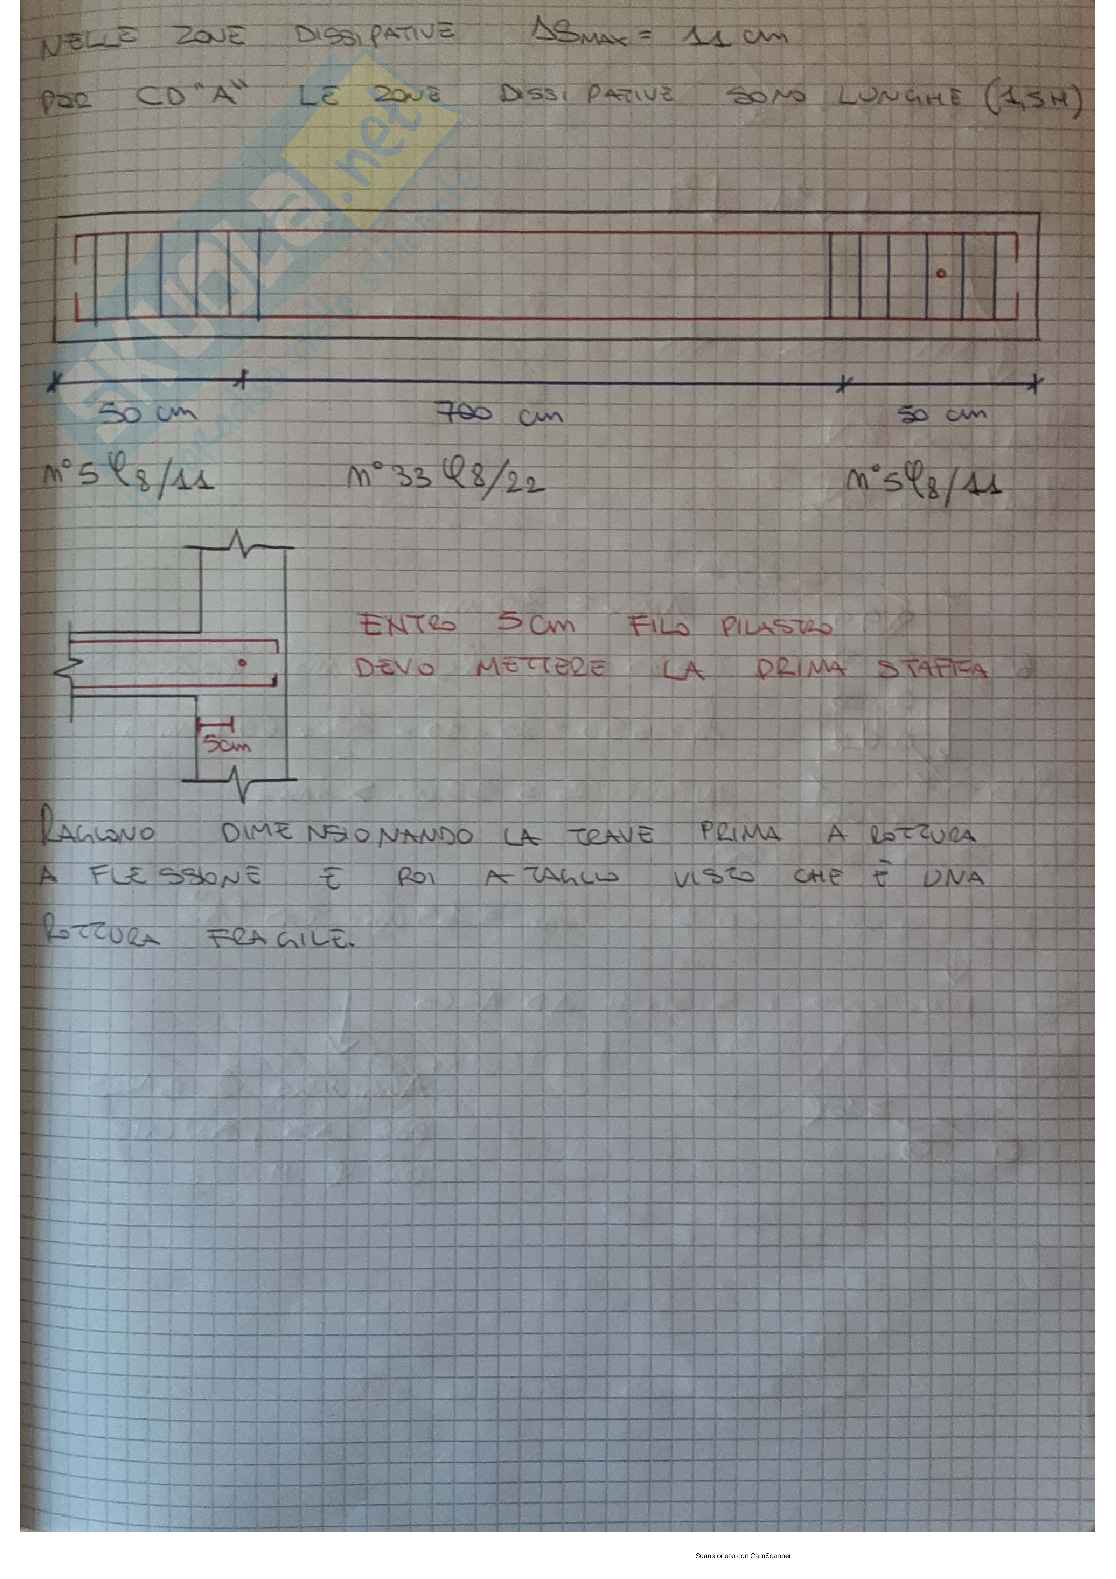 NELLE ZONE DISSIPATIVE ΔSMAX = 11 cm
PER CD"A" LE ZONE DISSIPATIVE SONO LUNGHE (1,5H)
SKUOLA.net
50 cm 700 cm 50 cm
n°5 φ8/11 n°33 φ8/22 n°5φ8/11
ENTRO 5cm FILO PILASTRO
DEVO METTERE LA PRIMA STAFFA
5cm
RAGIONO DIMENSIONANDO LA TRAVE PRIMA A ROTTURA
A FLESSIONE E POI A TAGLIO VISTO CHE È UNA
ROTTURA FRAGILE.